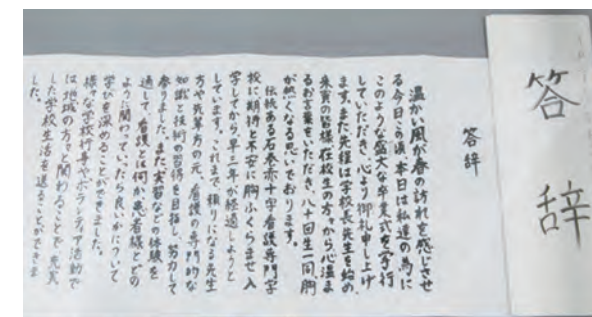 答辞
答辞
温かい風が春の訪れを感じさせ
る今日この頃、本日は私達の為に
このような盛大な卒業式を挙行
していただき、心より御礼申し上げ
ます。また先程は学校長先生を始め、
来賓の皆様、在校生の方々から心温ま
るお言葉をいただき、八十回生一同、胸
が熱くなる思いでおります。
伝統ある石巻赤十字看護専門学
校に期待と不安に胸ふくらませ入
学してから早三年が経過しようと
しています。これまで、頼りになる先生
方や先輩方の元、看護の専門的な
知識と技術の習得を目指し、努力して
参りました。また実習などの体験を
通して、看護とは何か、患者様とどの
ように関わっていったら良いかについて
学びを深めることができました。
様々な学校行事やボランティア活動で
は地域の方々と関わることで、充実
した学校生活を送ることができま
した。